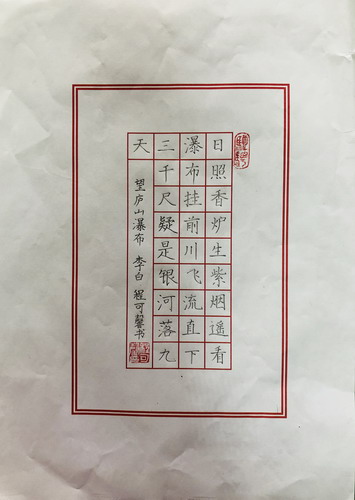 日照香炉生紫烟遥看
瀑布挂前川飞流直下
三千尺疑是银河落九
天
望庐山瀑布 李白 程可馨书